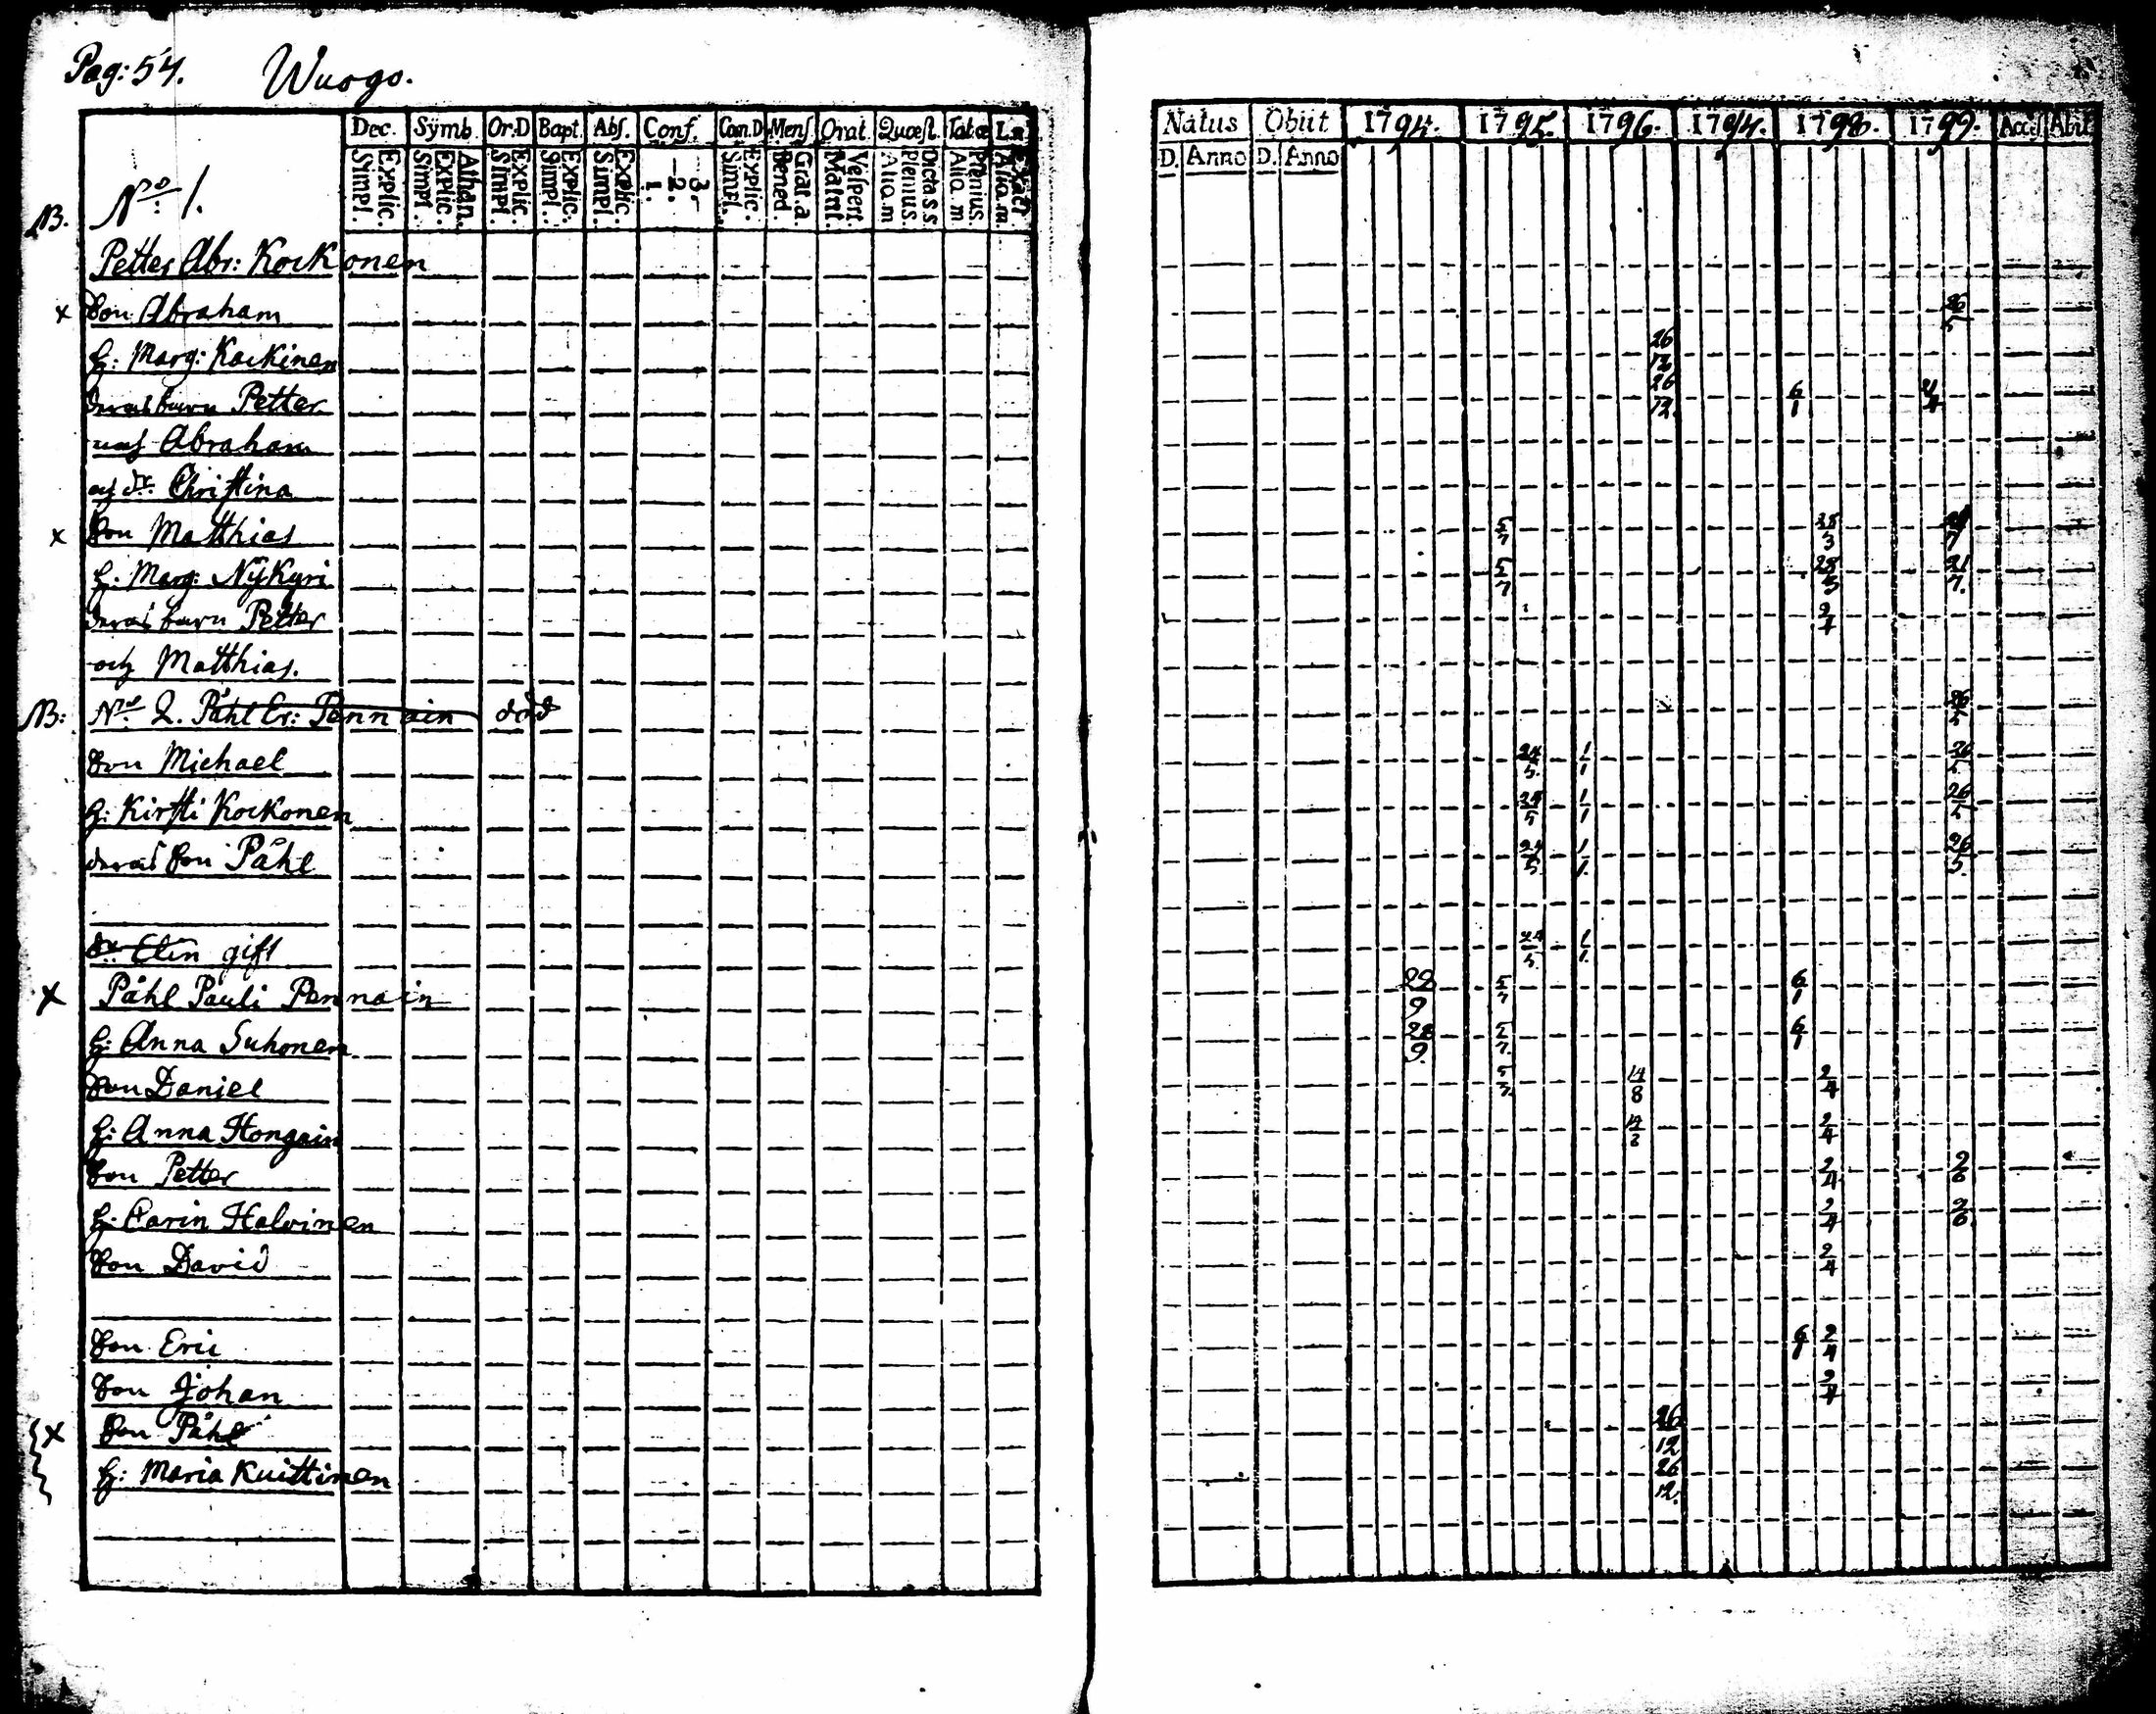 Pag: 54. Wuogo.
Dec. Symb. Or:D Bapt. Abs. Conf. Cœn.D Mens. Orat. Quæst. Tab.æ
Explic. Simpl. Athan. Explic. Simpl. Explic. Simpl. Explic. Simpl. Explic. Simpl. 3. 2. 1. Explic. Simpl. Grat.a. Bened. Vespert. Matut. Plenius. Alio.m Plenius. Alio.m Alio.m
Natus Obiit 1794. 1795. 1796. 1794. 1798. 1799. Access Abiit
D. Anno D. Anno
NB. No: 1.
Petter Abr: Kockonen
x Son Abraham 26/5
h: Marg: Kockinen 26/12
deras barn Petter 26/12. 6/1 4/4
Abraham
och dr. Christina
x Son Matthias 5/7 25/3 21/7
h: Marg: Nÿkyri 5/7 25/3 21/7.
deras barn Petter 2/4
och Matthias.
NB: No: 2. Påhl Er: Pennain död 26/5
Son Michael 24/5. 1/1 26/5
h: Kirsti Kockonen 24/5 1/1 26/5
deras Son Påhl 24/5. 1/1. 26/5.
dr. Elin gift 24/5. 1/1.
x Påhl Pauli Pennain 28/9 5/7 6/1
h: Anna Suhonen 28/9. 5/7. 6/1
Son Daniel 5/7. 14/8 2/4
h: Anna Hongain 14/8 2/4
Son Petter 2/4 2/6
h: Carin Halvinen 2/4 2/6
Son David 2/4
Son Eric 6/1 2/4
Son Johan 2/4
x Son Påhl 26/12
h: Maria Kuittinen 26/12.